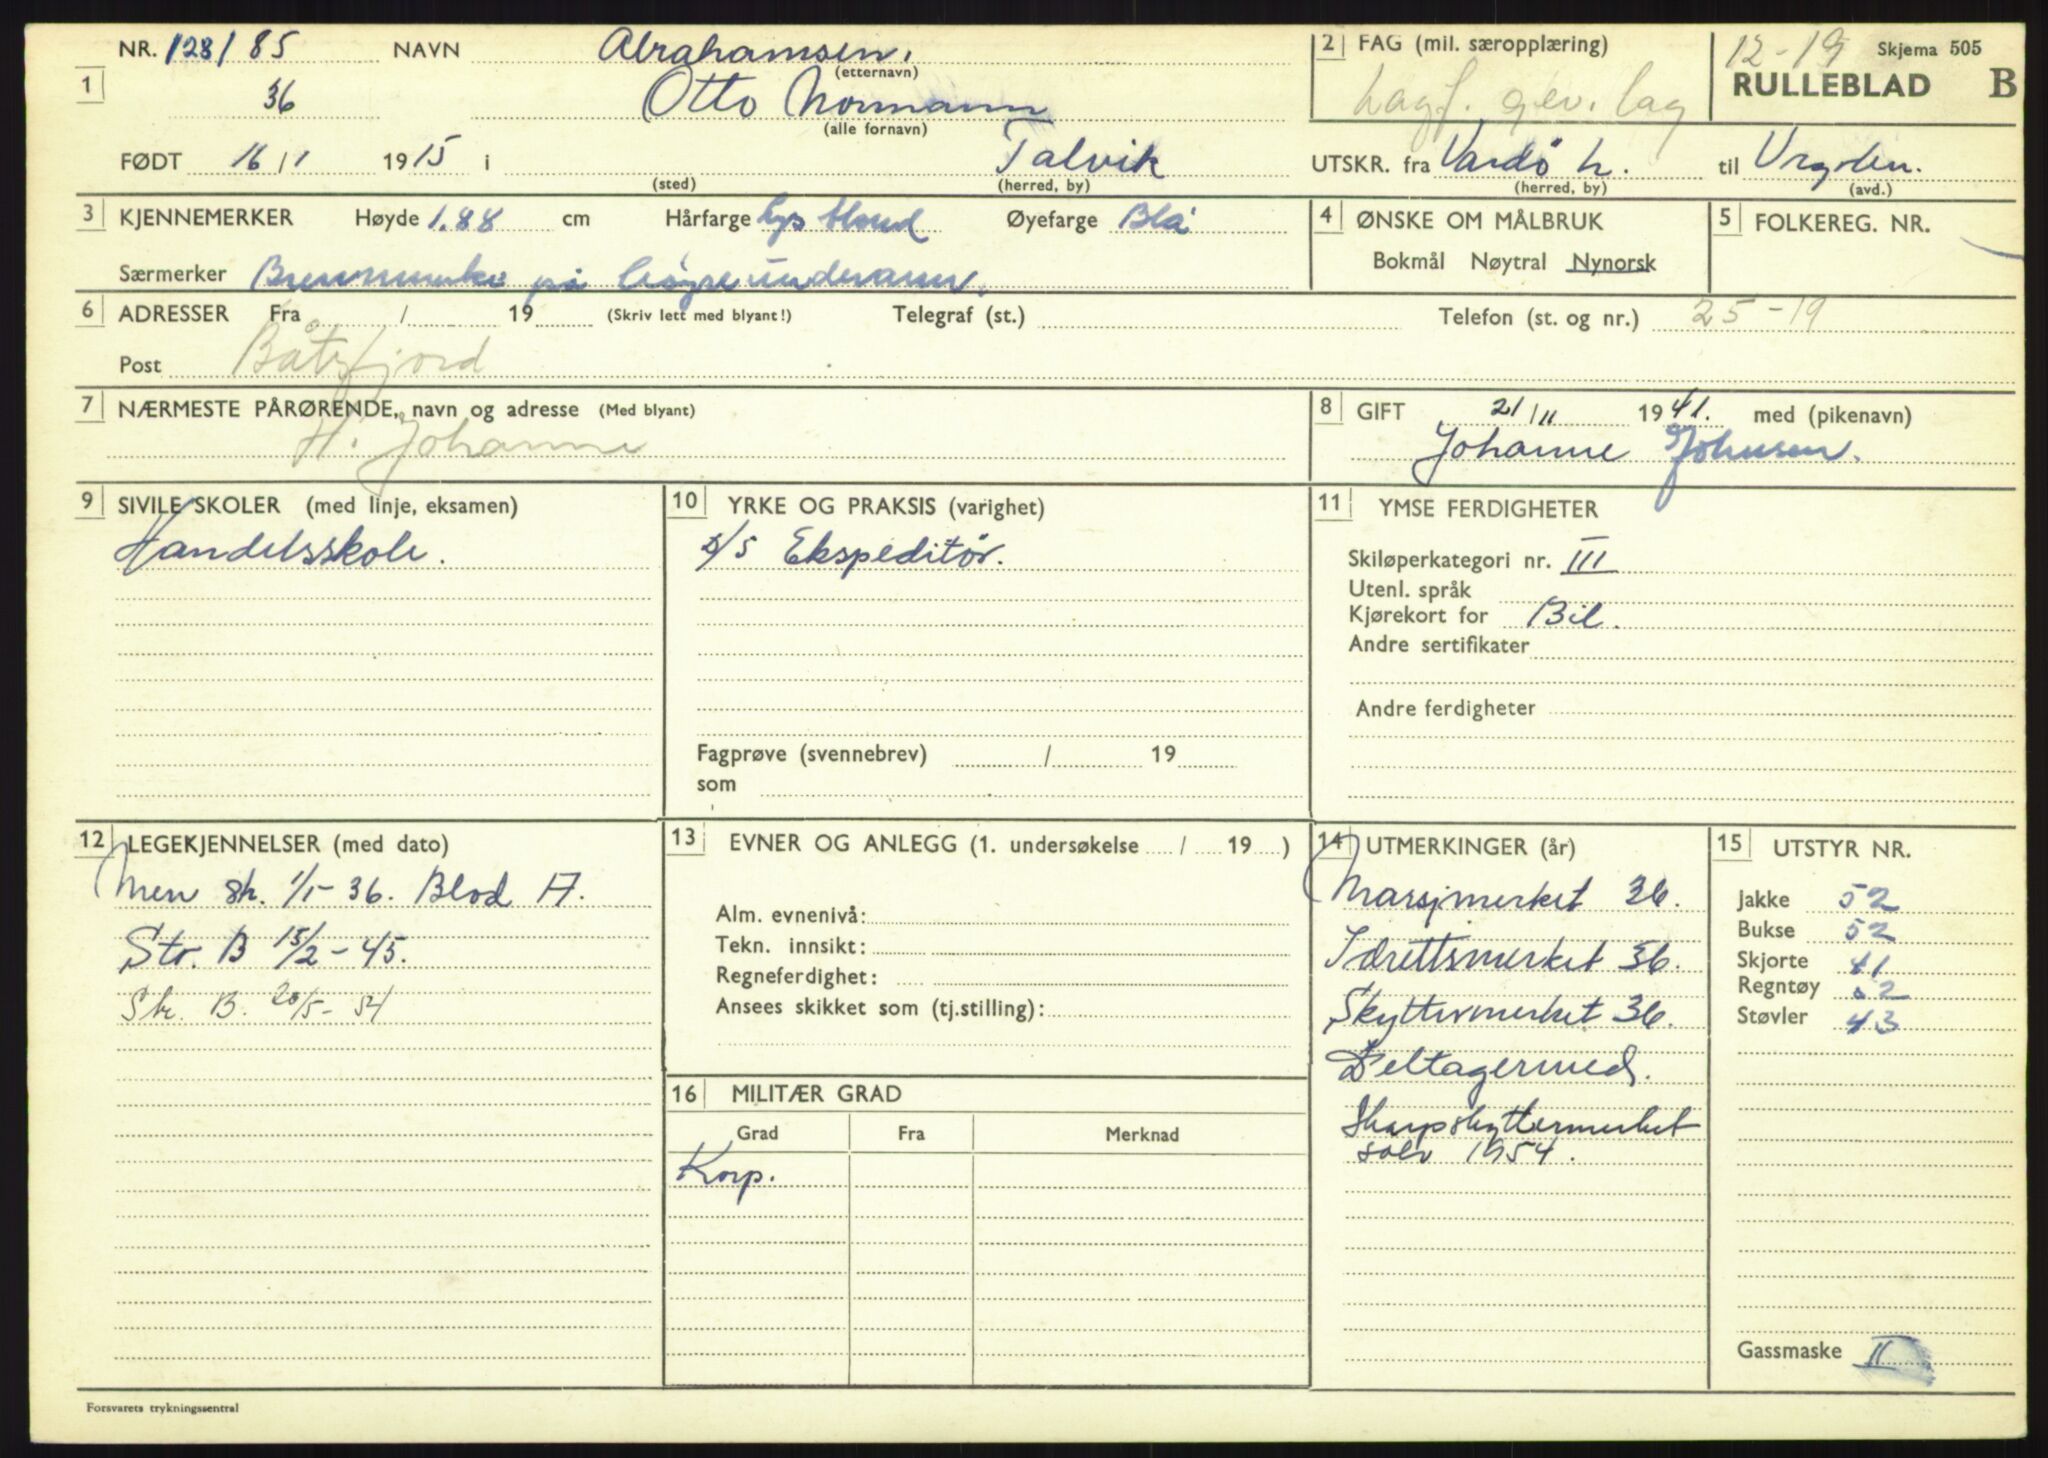 NR. 128/85 NAVN Abrahamsen, 2 FAG (mil. særopplæring) 12-19 Skjema 505
(etternavn)
1 36 Otto Normann Lagf. gev. lag RULLEBLAD B
(alle fornavn)
FØDT 16/1 1915 i Talvik UTSKR. fra Vardö h. til
(sted) (herred, by) (herred, by) (avd.)
3 KJENNEMERKER Høyde 1.88 cm Hårfarge lys blond Øyefarge Blå 4 ØNSKE OM MÅLBRUK 5 FOLKEREG. NR.
Bokmål Nøytral Nynorsk
Særmerker Brennmerke på høyre underarm.
6 ADRESSER Fra / 19 (Skriv lett med blyant!) Telegraf (st.) Telefon (st. og nr.) 25-19
Post Båtsfjord
7 NÆRMESTE PÅRØRENDE, navn og adresse (Med blyant) 8 GIFT 21/11 1941. med (pikenavn)
H. Johanne Johanne Johnsen.
9 SIVILE SKOLER (med linje, eksamen) 10 YRKE OG PRAKSIS (varighet) 11 YMSE FERDIGHETER
Handelsskole. D/S Ekspeditör. Skiløperkategori nr. III
Utenl. språk
Kjørekort for Bil.
Andre sertifikater
Andre ferdigheter
Fagprøve (svennebrev) / 19
som
12 LEGEKJENNELSER (med dato) 13 EVNER OG ANLEGG (1. undersøkelse / 19 ) 14 UTMERKINGER (år) 15 UTSTYR NR.
Men sk. 1/1-36. Blod A. Marsjmerket 36. Jakke 52
Alm. evnenivå: Bukse 52
Str. B 15/2-45. Tekn. innsikt: Idrettsmerket 36. Skjorte 41
Regneferdighet: Regntøy 52
Str. B. 20/5-54 Ansees skikket som (tj.stilling): Skyttermerket 36. Støvler 43
Deltagermed.
16 MILITÆR GRAD
Grad Fra Merknad Skarpskyttermerket
Korp. sölv 1954.
Gassmaske II
Forsvarets trykningssentral